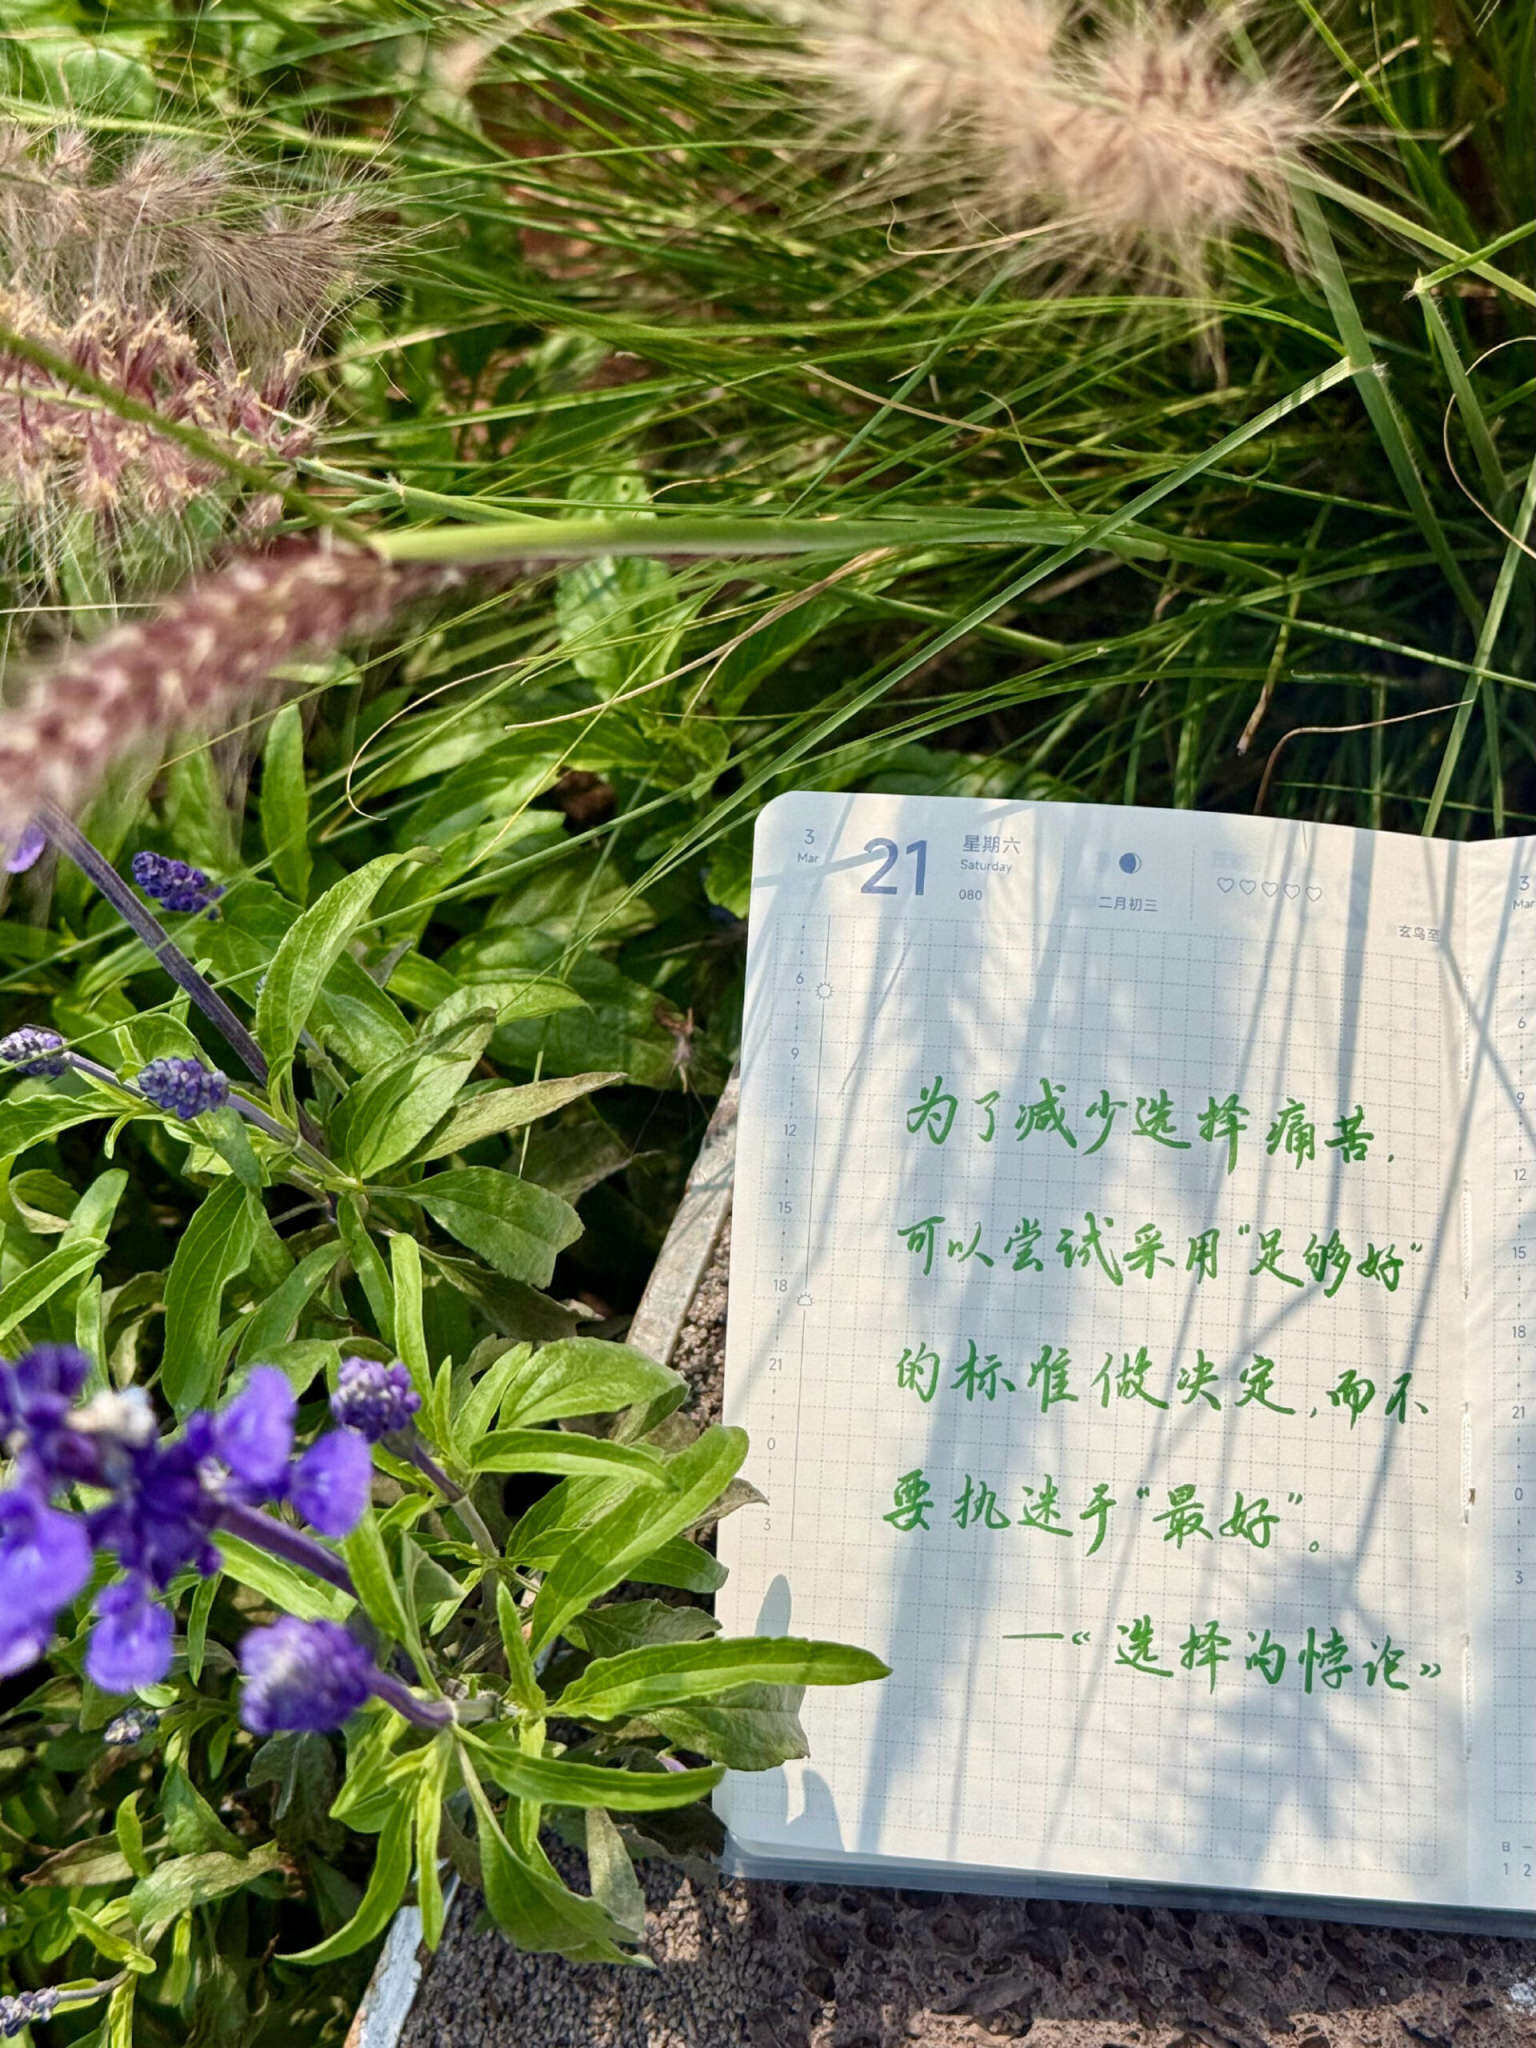 3
Mar
21
星期六
Saturday
080
二月初三
玄鸟至
6
9
12
15
18
21
0
3
为了减少选择痛苦，
可以尝试采用“足够好”
的标准做决定，而不
要执迷于“最好”。
—《选择的悖论》
3
Mar
6
9
12
15
18
21
0
3
日 一
1 2